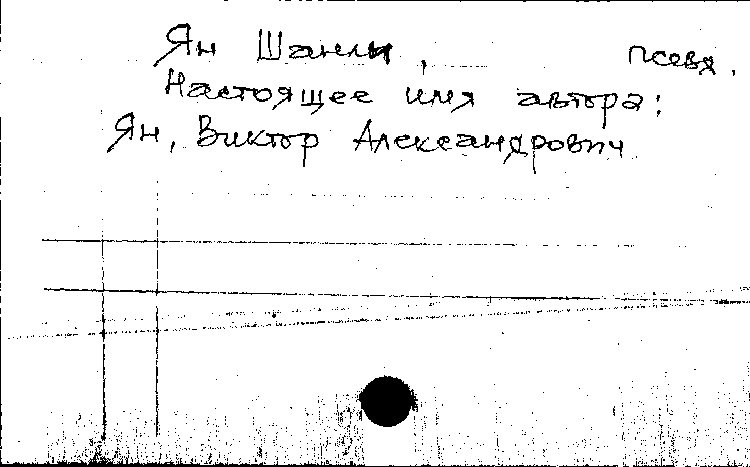 Ян Шанлы, псевд.
Настоящее имя автора:
Ян, Виктор Александрович